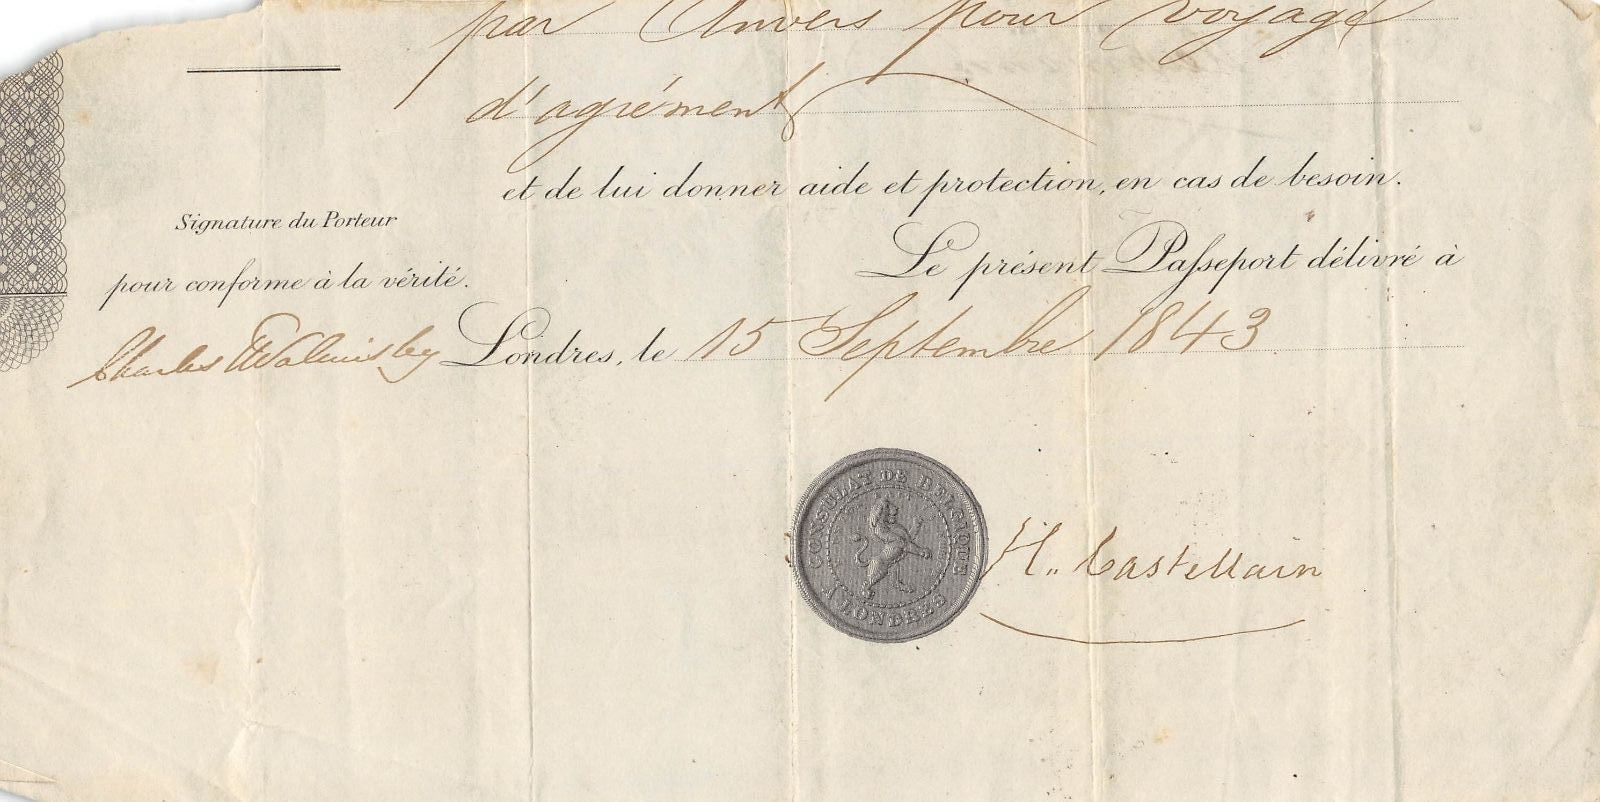 par Anvers pour voyage
d'agrément
et de lui donner aide et protection, en cas de besoin.
Signature du Porteur
Le présent Passeport délivré à
pour conforme à la vérité.
Charles Londres, le 15 Septembre 1843
CONSULAT DE BELGIQUE
A LONDRES
H. Castellain